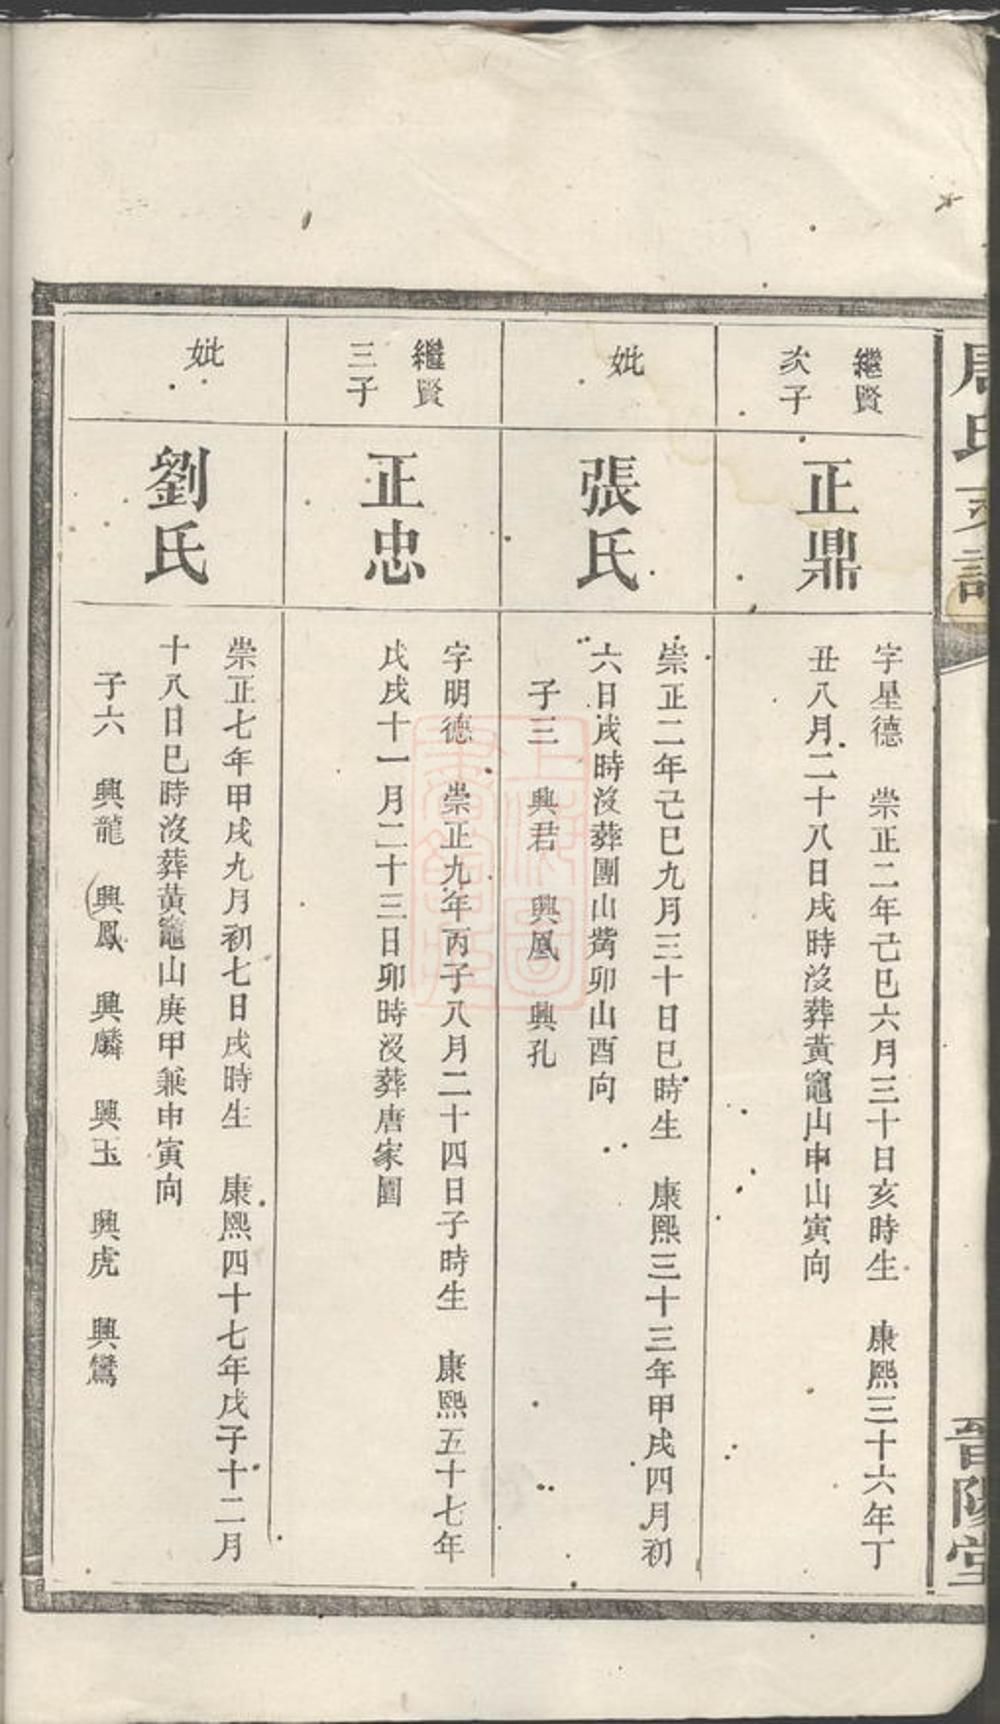 周氏支譜
晉陽堂
繼賢
次子
正鼎
字星德　崇正二年己巳六月三十日亥時生　康熙三十六年丁
丑八月二十八日戌時沒葬黃竈山申山寅向
妣
張氏
崇正二年己巳九月三十日巳時生　康熙三十三年甲戌四月初
六日戌時沒葬團山嘴卯山酉向
子三　興君　興鳳　興孔
繼賢
三子
正忠
字明德　崇正九年丙子八月二十四日子時生　康熙五十七年
戊戌十一月二十三日卯時沒葬唐家園
妣
劉氏
崇正七年甲戌九月初七日戌時生　康熙四十七年戊子十二月
十八日巳時沒葬黃竈山庚甲兼申寅向
子六　興龍　興鳳　興麟　興玉　興虎　興鸞